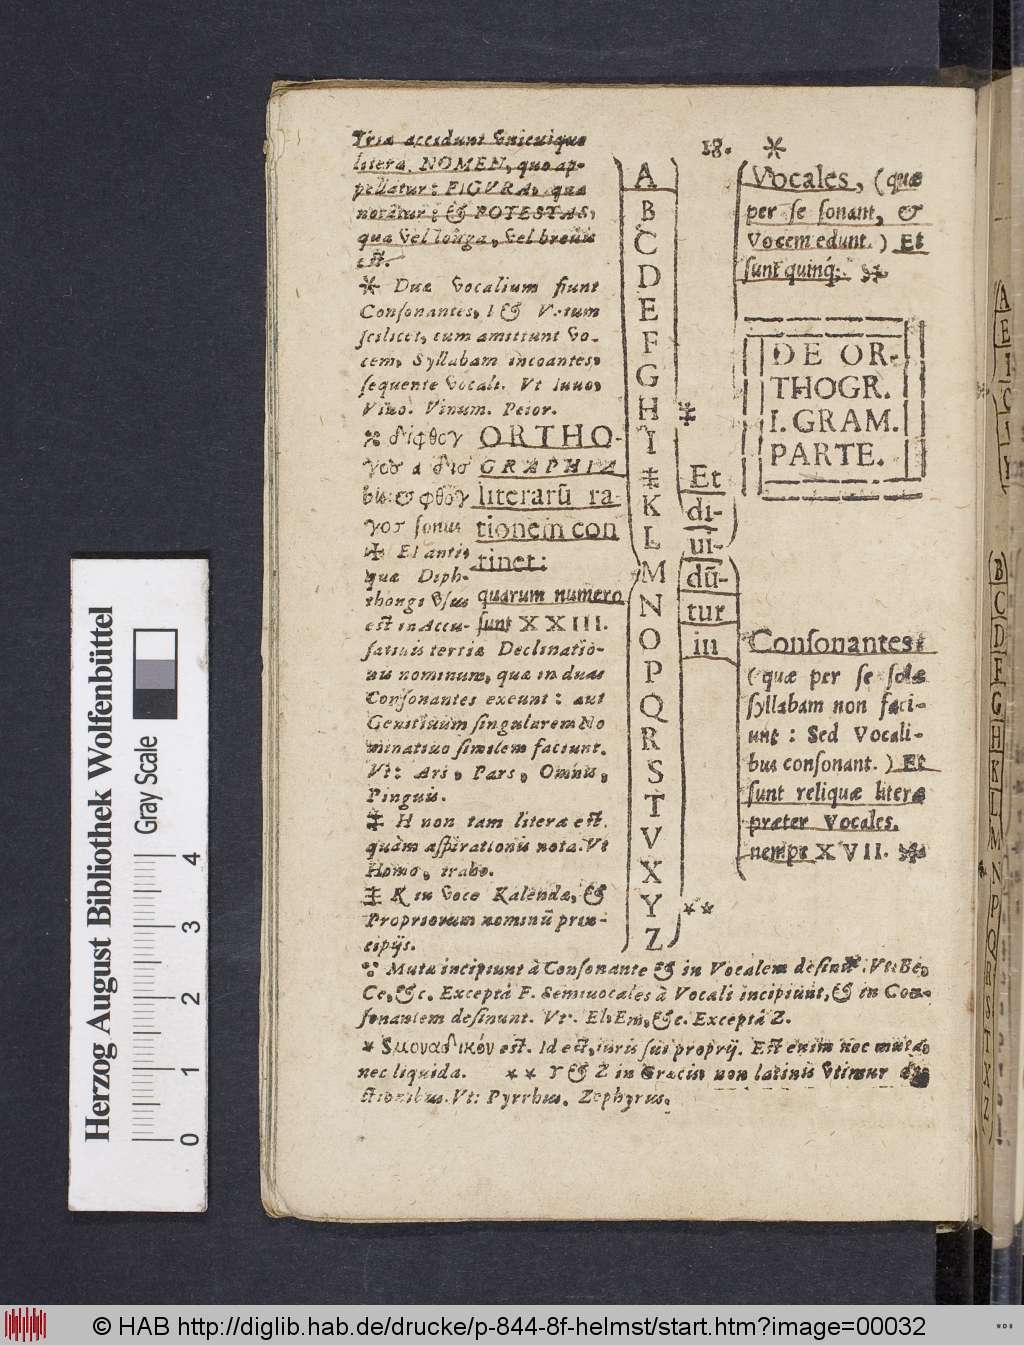 18.
Tria accidunt vnicuique
litera, NOMEN, quo ap-
pellatur: FIGVRA, qua
notatur: & POTESTAS,
qua vel longa, vel breuis
est.
* Duæ vocalium fiunt
Consonantes, I & V. tum
scilicet, cum amittunt vo-
cem, Syllabam incoantes,
sequente vocali. Vt Iuuo,
Viuo. Vinum. Peior.
δίφθογ
γοσ a δισ
bis: & φθογ
γοσ sonus
✠ El antis
quæ Diph-
thongi vsus
est in Accu-
satiuis tertiæ Declinatio-
nis nominum, quæ in duas
Consonantes exeunt: aut
Genitiuum singularem No
minatiuo similem faciunt.
Vt: Ars, Pars, Omnis,
Pinguis.
‡ H non tam litera est,
quàm aspirationis nota. Vt
Homo, traho.
‡ K in voce Kalendæ, &
Propriorum nominū prin-
cipijs.
ORTHO-
GRAPHIA
literarū ra-
tionem con
tinet:
quarum numero
sunt XXIII.
A
B
C
D
E
F
G
H
I
‡
K
L
M
N
O
P
Q
R
S
T
V
X
Y
Z
Et
di-
ui-
dū-
tur
in
*
Vocales, (quæ
per se sonant, &
Vocem edunt.) Et
sunt quinq;.
DE OR-
THOGR.
I. GRAM.
PARTE.
Consonantes:
(quæ per se solæ
syllabam non faci-
unt: Sed Vocali-
bus consonant.) Et
sunt reliquæ literæ
præter Vocales.
nempe XVII.
**
Mutæ incipiunt à Consonante & in Vocalem desinūt. Vt: Be,
Ce, &c. Exceptâ F. Semiuocales à Vocali incipiunt, & in Con-
sonantem desinunt. Vt: El, Em, &c. Exceptâ Z.
* S μοναδικόν est. Id est, iuris sui proprij. Est enim nec muta,
nec liquida. ** Y & Z in Græcis non latinis vtimur
ctionibus. Vt: Pyrrhus, Zephyrus.
A
E
I
B
C
D
F
G
H
K
L
M
N
P
Q
R
S
T
X
Z
Herzog August Bibliothek Wolfenbüttel
Gray Scale
0 1 2 3 4
© HAB http://diglib.hab.de/drucke/p-844-8f-helmst/start.htm?image=00032